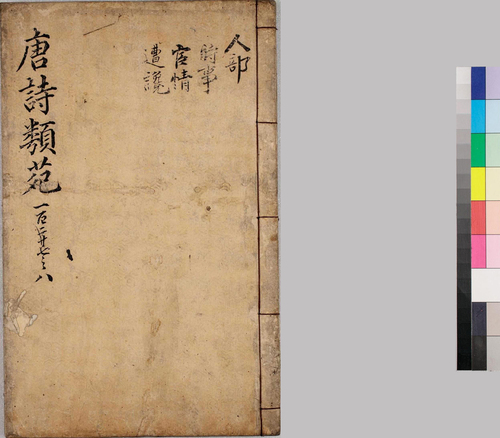 人部
時事
宦情
遭讒
唐詩類苑
一百廿七之八